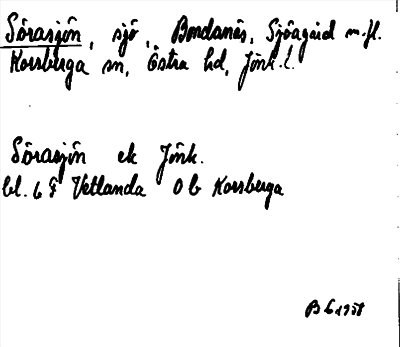 Sörasjön, sjö, Bordanäs, Sjöagård m.fl.
Korsberga sn, Östra hd, Jönk.l.
Sörasjön ek Jönk.
bl. 6 F Vetlanda 0 b Korsberga